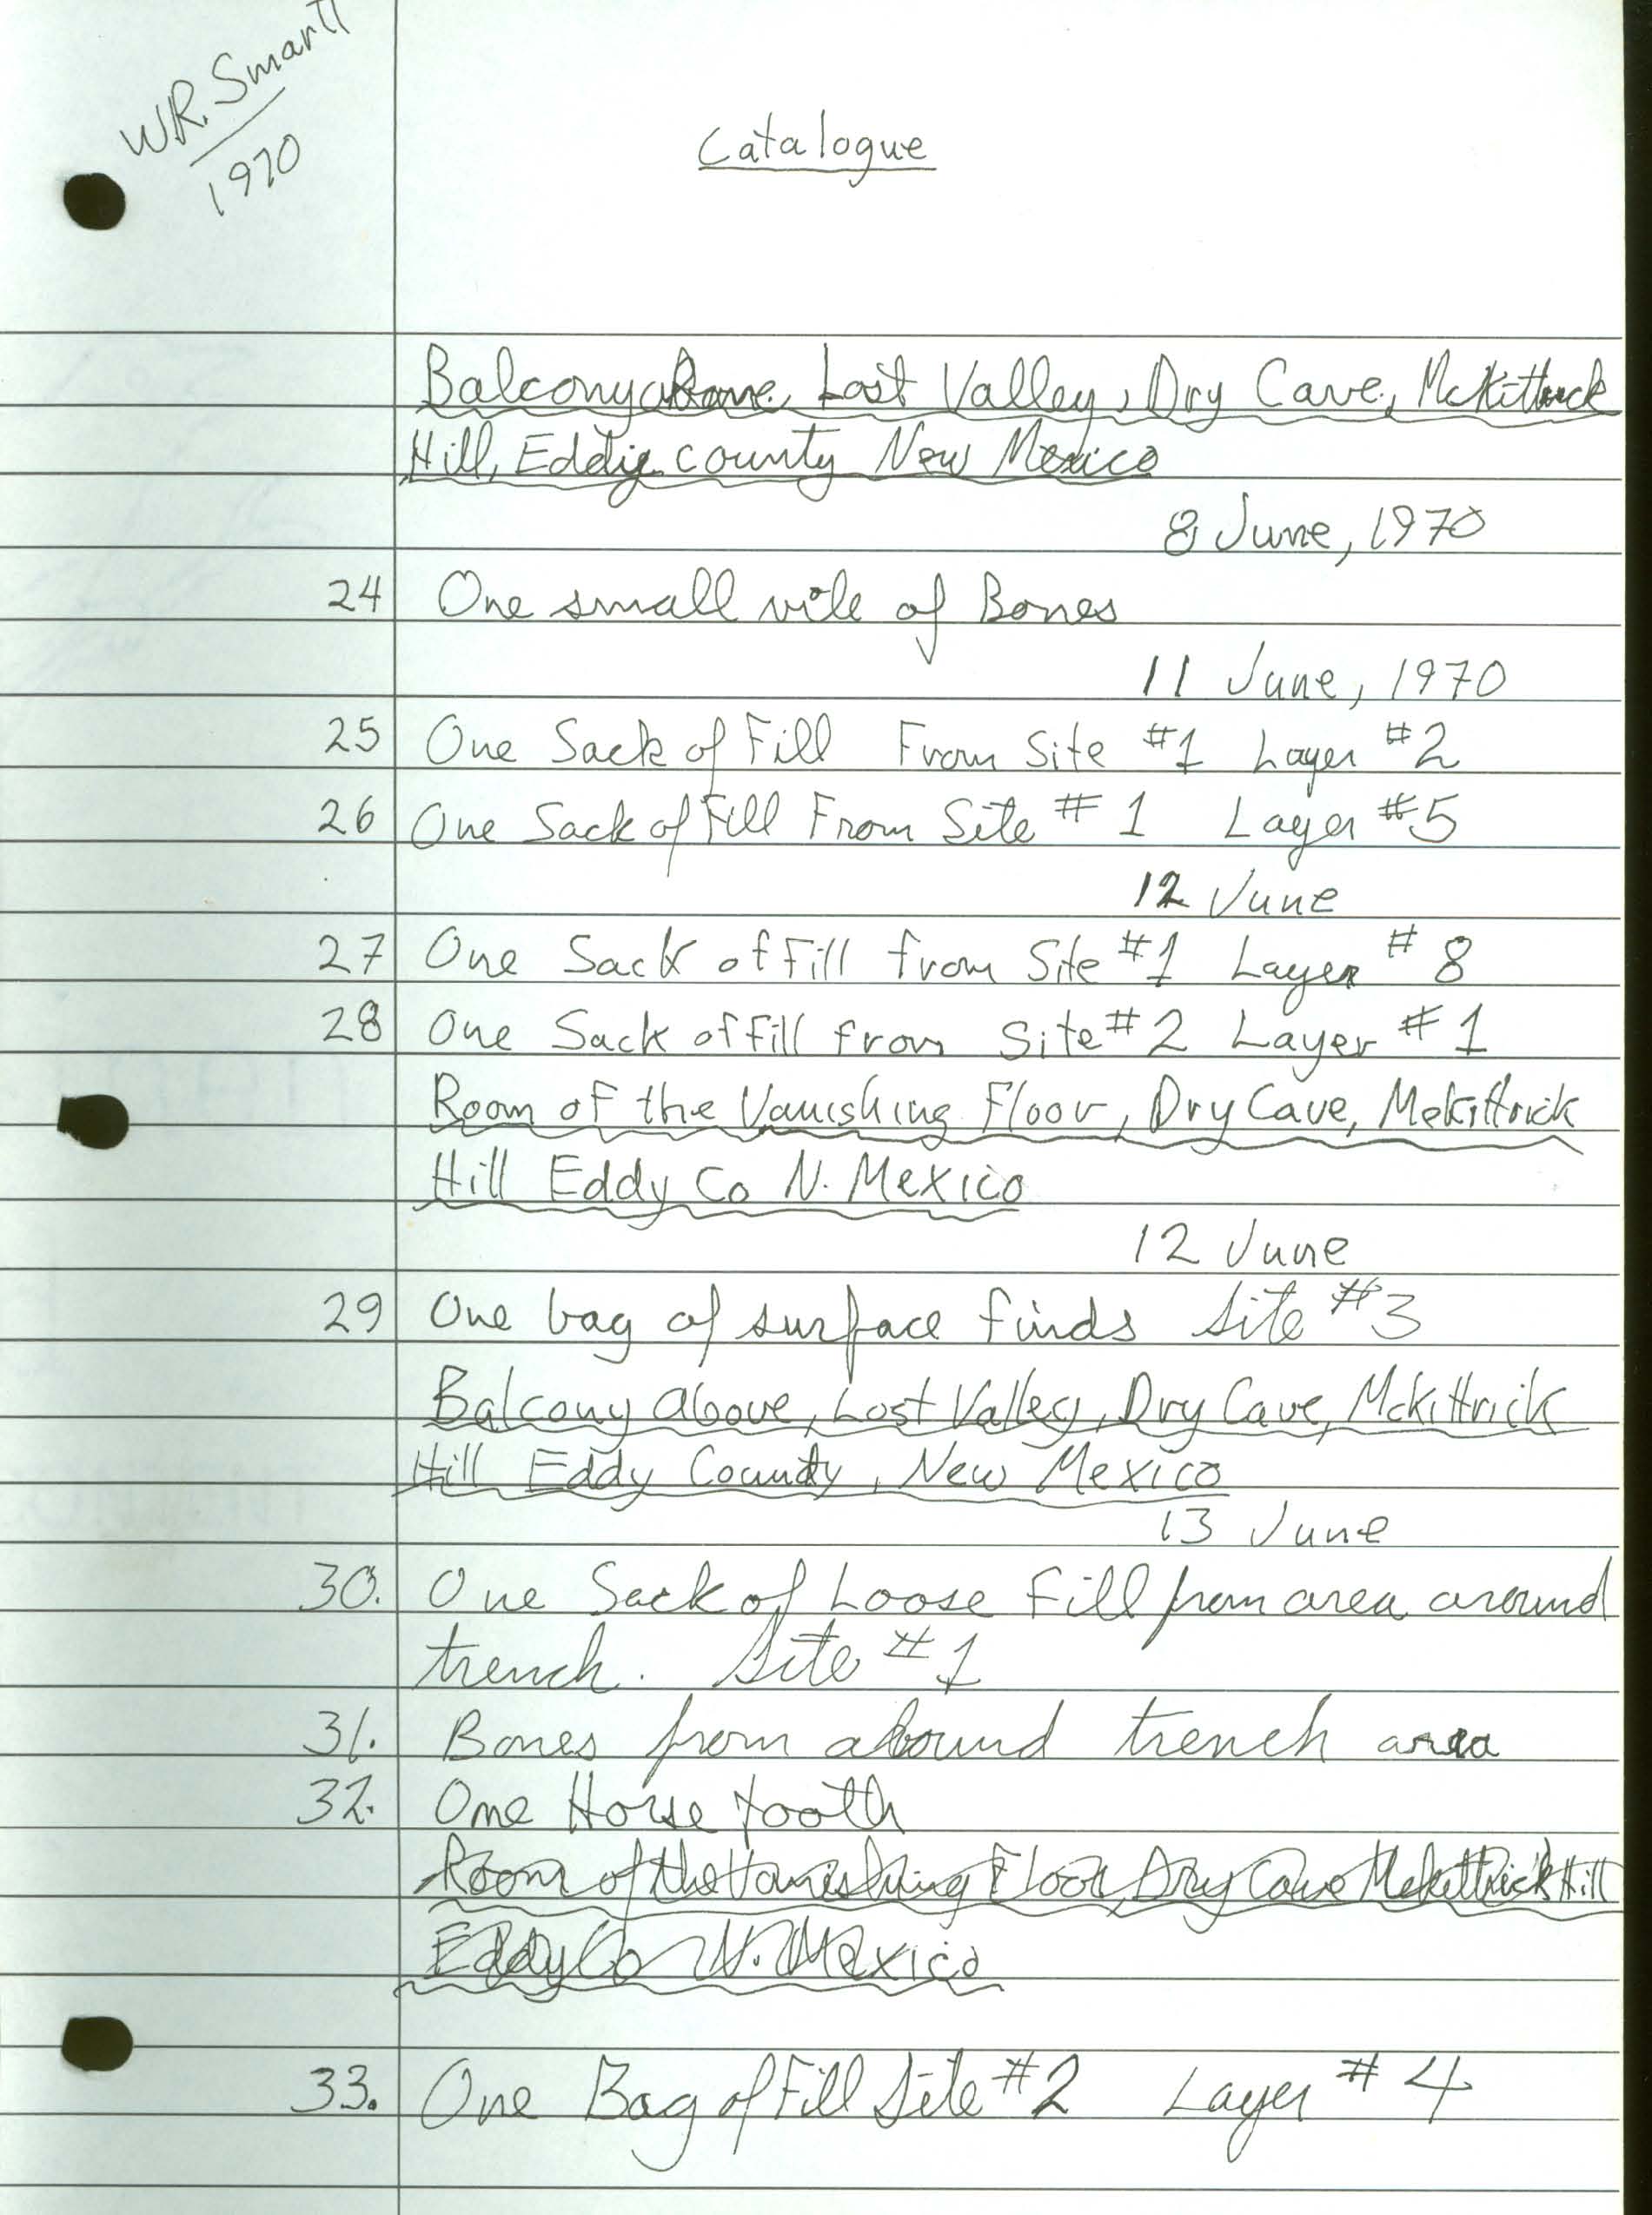 W.R. Smartt
1970
Catalogue
Balcony above, Lost Valley, Dry Cave, McKittrick
Hill, Eddy county New Mexico
8 June, 1970
24 One small vile of Bones
11 June, 1970
25 One Sack of Fill From Site #1 Layer #2
26 One Sack of Fill From Site #1 Layer #5
12 June
27 One Sack of Fill from Site #1 Layer #8
28 One Sack of Fill from Site #2 Layer #1
Room of the Vanishing Floor, Dry Cave, Mckittrick
Hill Eddy Co N. Mexico
12 June
29 One bag of surface finds Site #3
Balcony above, Lost Valley, Dry Cave, Mckittrick
Hill Eddy County, New Mexico
13 June
30. One Sack of Loose Fill from area around
trench. Site #1
31. Bones from around trench area
32. One Horse tooth
Room of the Vanishing Floor, Dry Cave Mckittrick Hill
Eddy Co N. Mexico
33. One Bag of Fill Site #2 Layer #4